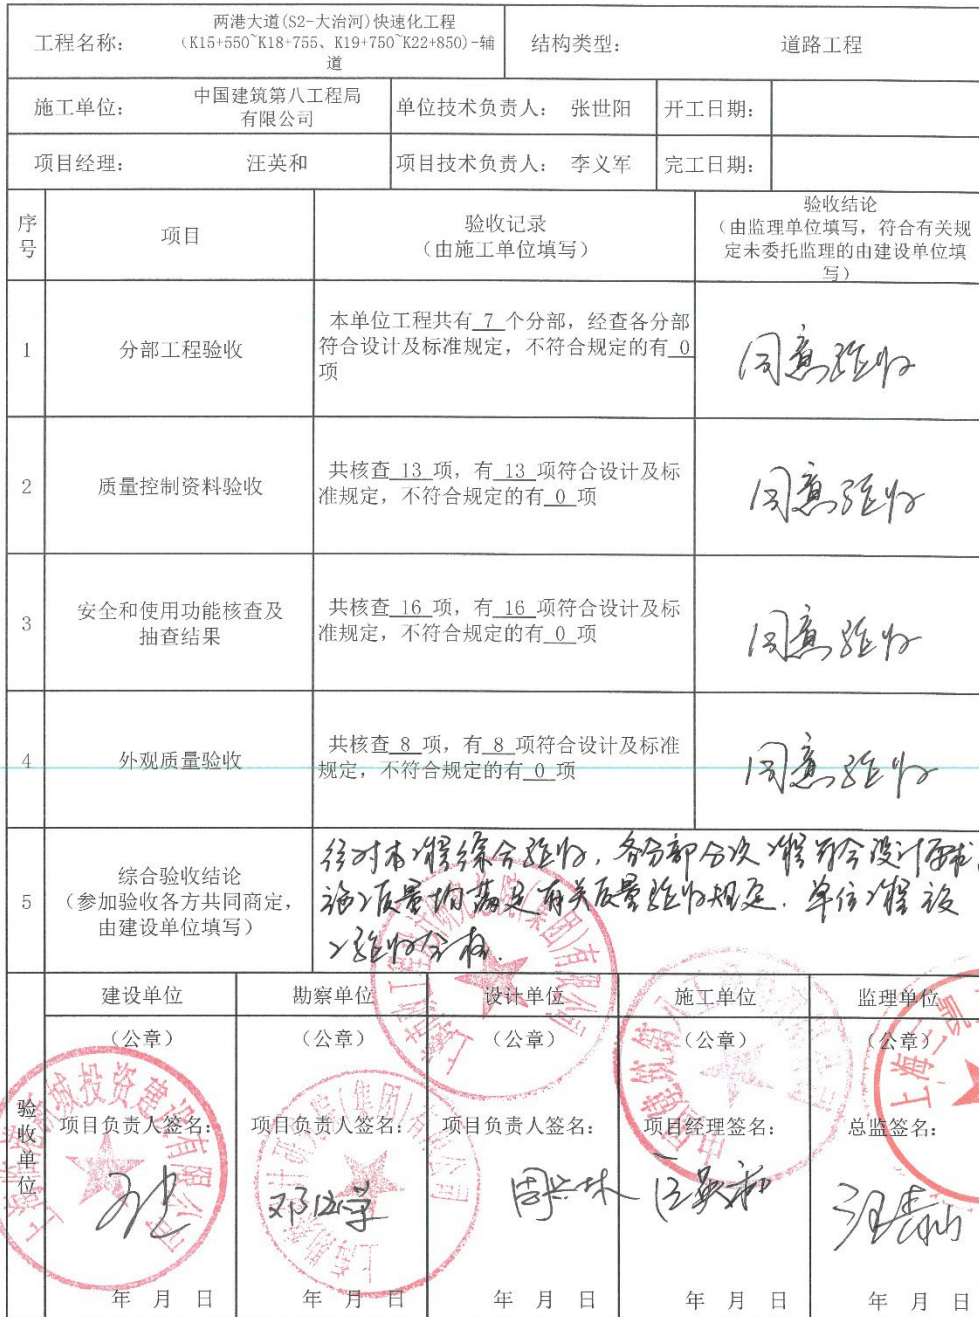 工程名称：
两港大道(S2-大治河)快速化工程
(K15+550~K18+755、K19+750~K22+850)-辅
道
结构类型：
道路工程
施工单位：
中国建筑第八工程局
有限公司
单位技术负责人：
张世阳
开工日期：
项目经理：
汪英和
项目技术负责人：
李义军
完工日期：
序
号
项目
验收记录
（由施工单位填写）
验收结论
（由监理单位填写，符合有关规
定未委托监理的由建设单位填
写）
1
分部工程验收
本单位工程共有 7 个分部，经查各分部
符合设计及标准规定，不符合规定的有 0
项
同意验收
2
质量控制资料验收
共核查 13 项，有 13 项符合设计及标
准规定，不符合规定的有 0 项
同意验收
3
安全和使用功能核查及
抽查结果
共核查 16 项，有 16 项符合设计及标
准规定，不符合规定的有 0 项
同意验收
4
外观质量验收
共核查 8 项，有 8 项符合设计及标准
规定，不符合规定的有 0 项
同意验收
5
综合验收结论
（参加验收各方共同商定，
由建设单位填写）
经对本工程综合验收，各分部分次工程符合设计要求，
施工质量均满足有关质量验收规定．单位工程竣
工验收合格．
验收单位
建设单位
勘察单位
设计单位
施工单位
监理单位
（公章）
（公章）
（公章）
（公章）
（公章）
项目负责人签名：
项目负责人签名：
项目负责人签名：
项目经理签名：
总监签名：
周兴林
汪英和
年 月 日
年 月 日
年 月 日
年 月 日
年 月 日